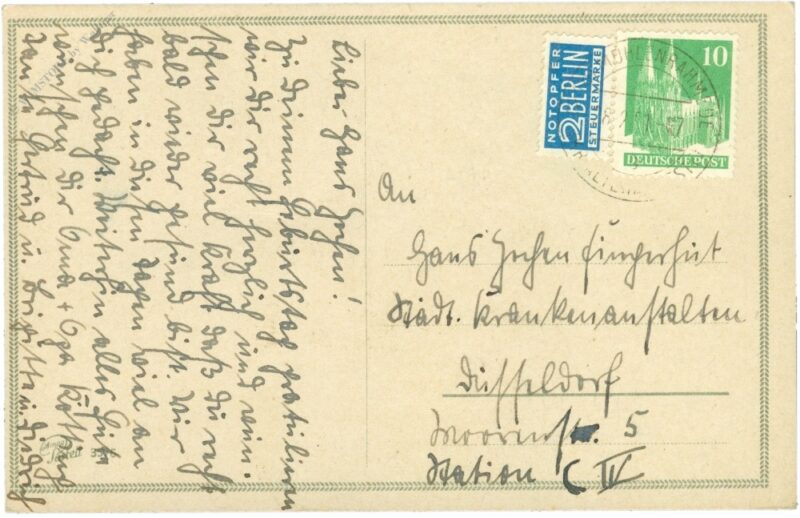 Lieber Hans Jochen!
Zu Deinem Geburtstag gratulieren
wir Dir recht herzlich und wün-
schen Dir viel Kraft daß Du recht
bald wieder gesund bist. Wir
haben in diesen Tagen viel an
Dich gedacht. Weiterhin alles Gute
wünschen Dir Oma + Opa
NOTOPFER
2 BERLIN
STEUERMARKE
10
DEUTSCHE POST
An
Hans Jochen Fingerhut
Städt. Krankenanstalten
Düsseldorf
Moorenstr. 5
Station C IV